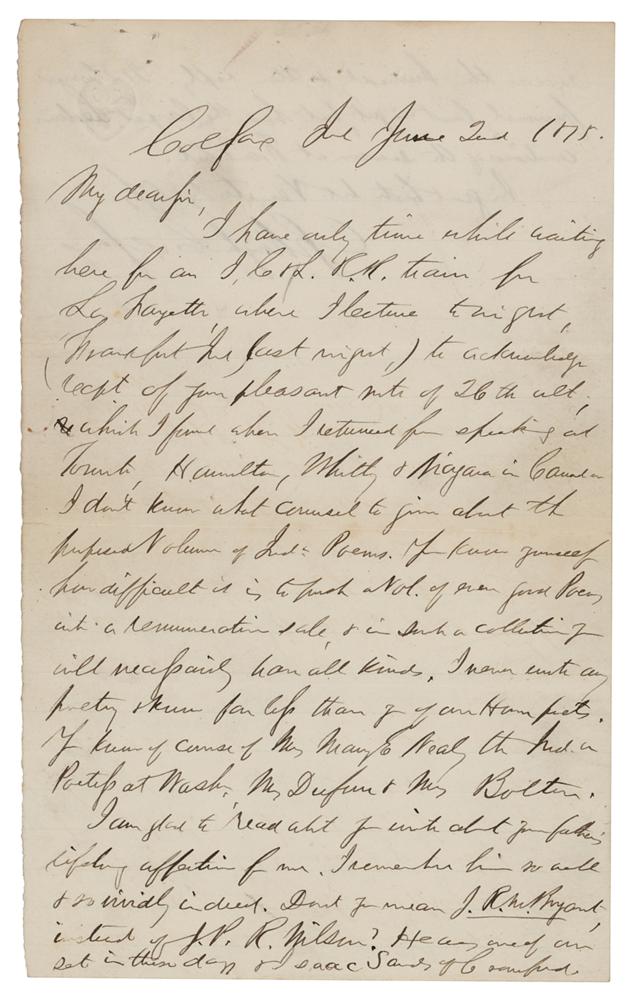 Colfax Ind June 2nd 1875.
My dear Sir,
I have only time while waiting
here for an I, C & L. R.R. train for
La Fayette, where I lecture tonight,
(Frankfort Ind last night,) to acknowledge
recpt of your pleasant note of 26th ult,
which I found when I returned from speaking at
Toronto, Hamilton, Whitby & Niagara in Canada
I don't know what counsel to give about the
proposed Volume of Inda Poems. You know yourself
how difficult it is to push a Vol. of even good Poems
into a remunerative sale, & in such a collection you
will necessarily have all kinds. I never write any
poetry & know far less than you of our Home poets.
You know of course of Mrs Mary E Nealy the Inda
Poetess at Wash, Mrs Dufour & Mrs Bolton.
I am glad to read what you write about your father's
lifelong affection for me. I remember him so well
& so vividly indeed. Don't you mean J. R. M. Bryant,
instead of J. P. R. Wilson? He was one of our
set in those days & Isaac Sands of Crawford